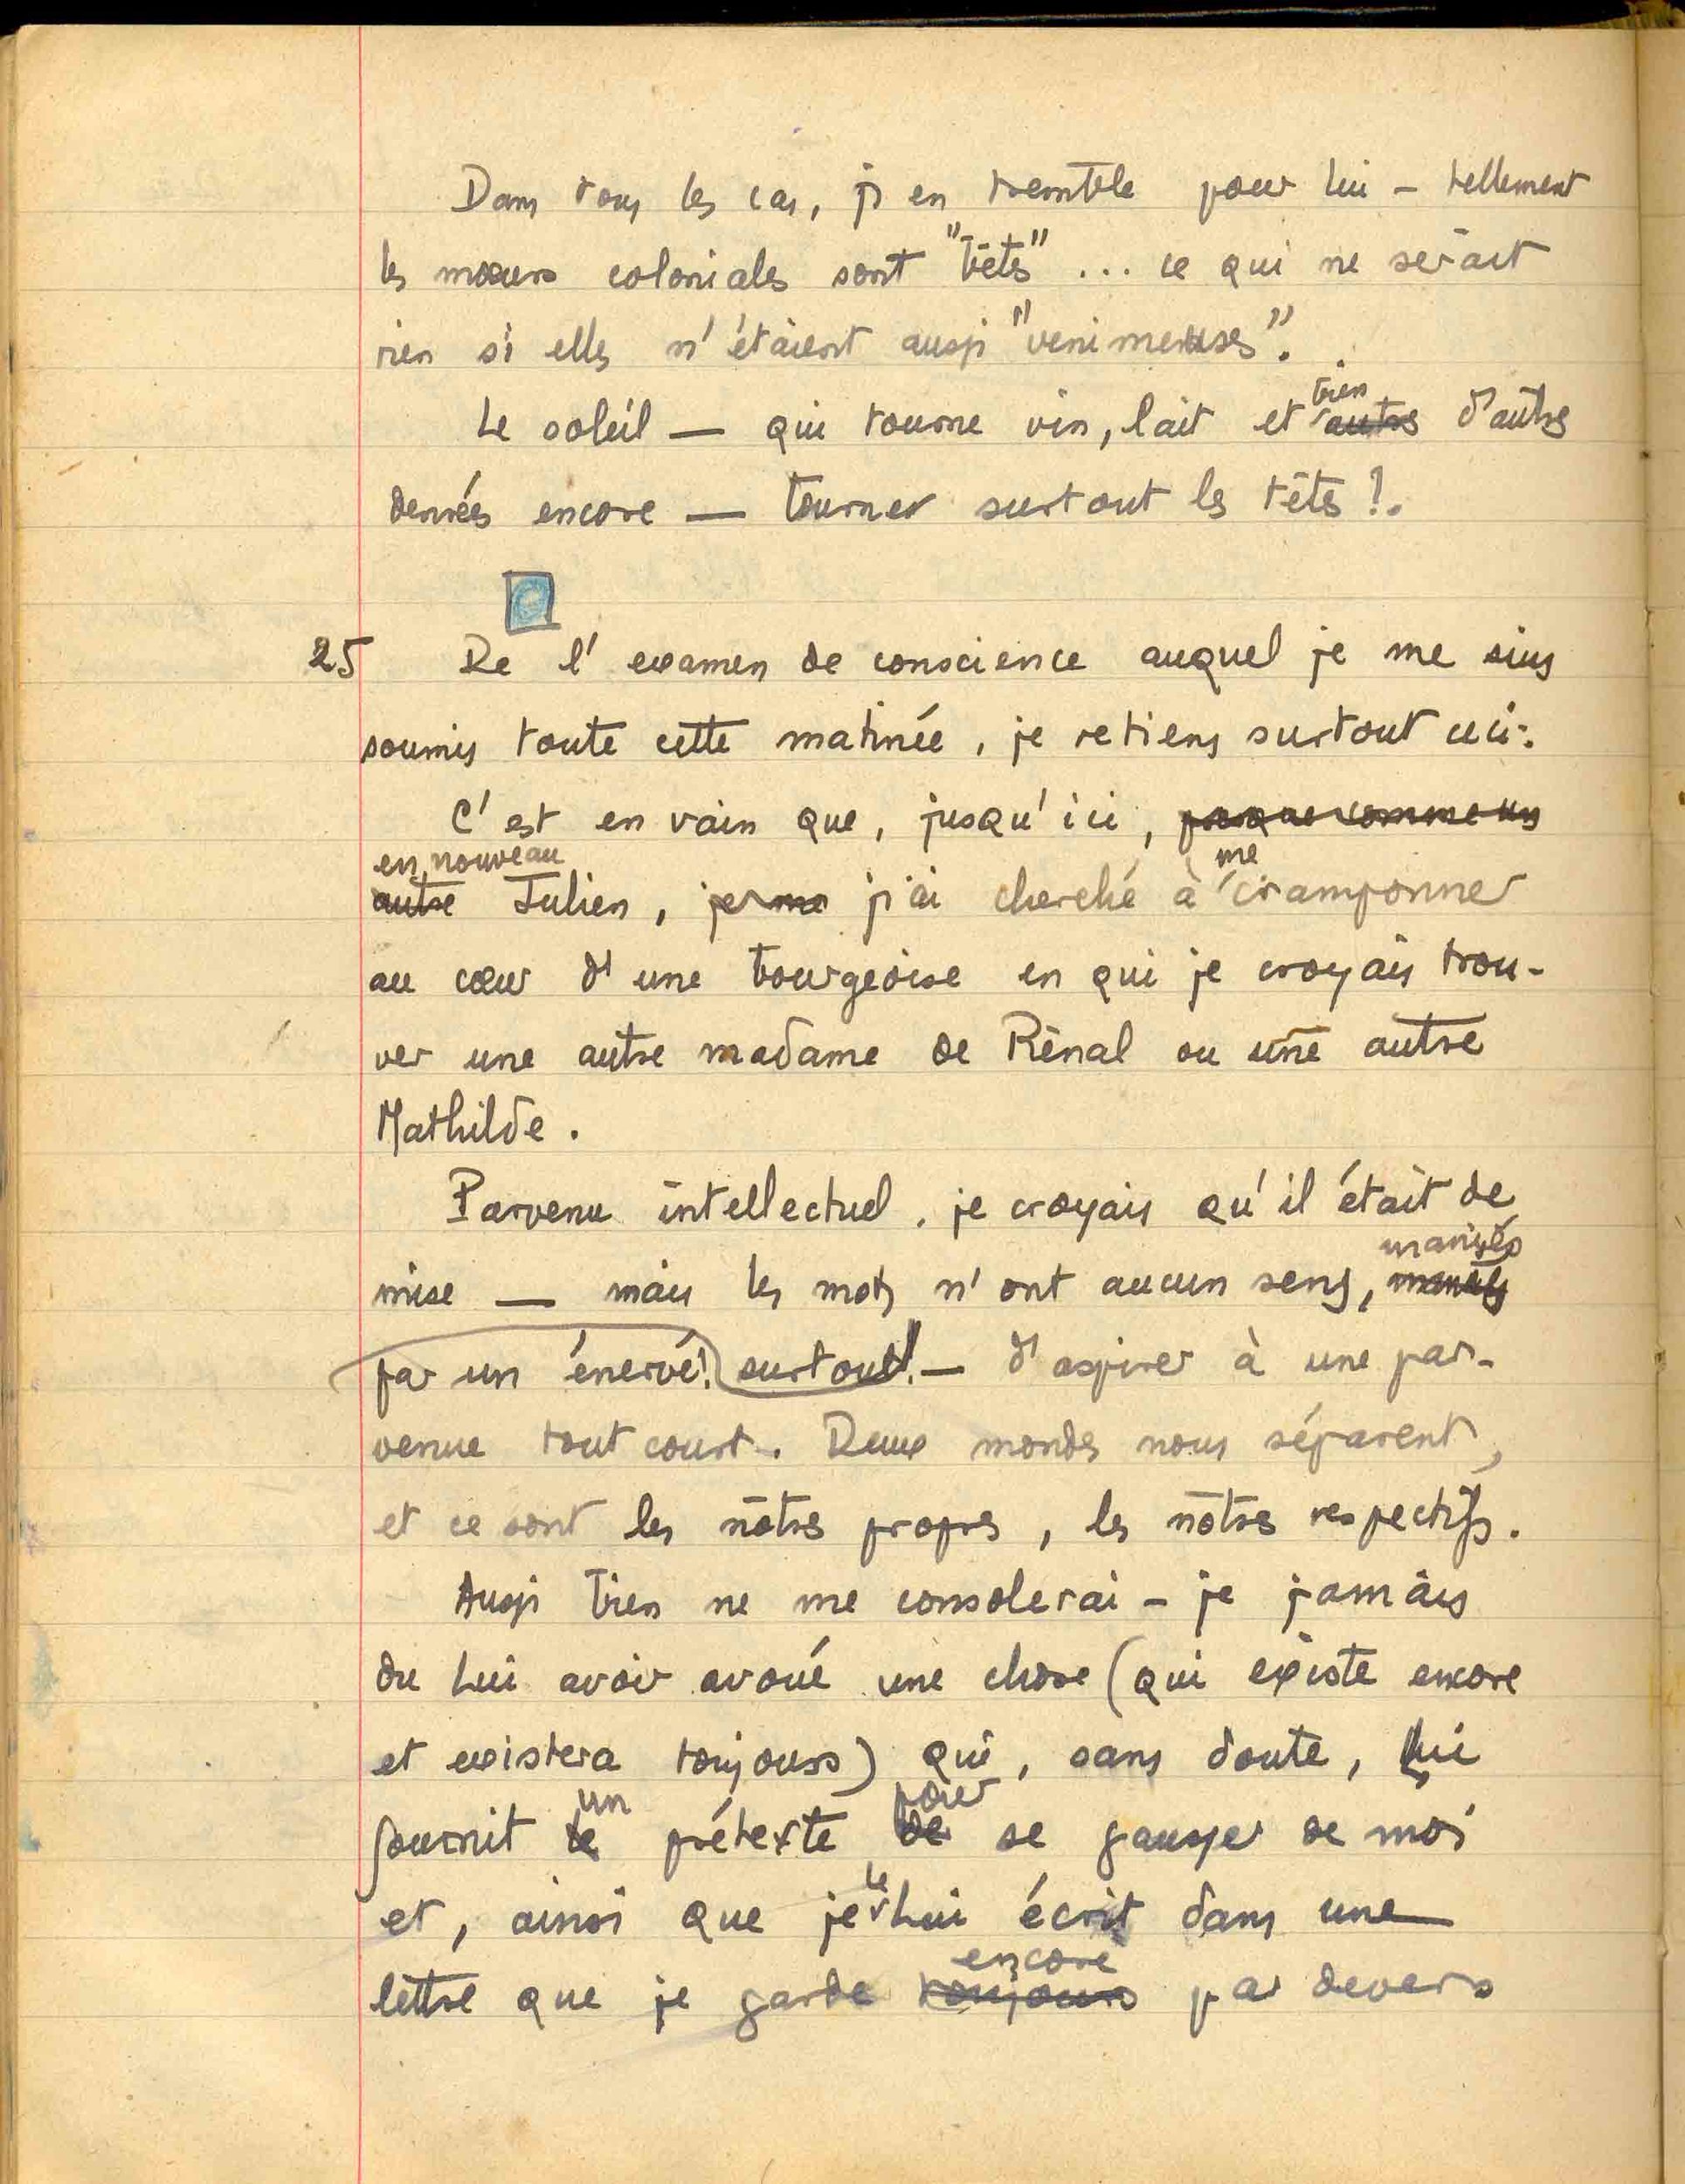 Dans tous les cas, j'en tremble pour lui – tellement
les mœurs coloniales sont "bêtes" ... ce qui ne serait
rien si elles n'étaient aussi "venimeuses".
bien
Le soleil — qui tourne vin, lait et autres d'autres
denrées encore — tourner surtout les têtes !.
25 De l'examen de conscience auquel je me suis
soumis toute cette matinée, je retiens surtout ceci :
C'est en vain que, jusqu'ici, presque comme un
en nouveau me
autre Julien, je me j'ai cherché à cramponner
au cœur d'une bourgeoise en qui je croyais trou-
ver une autre madame de Rênal ou une autre
Mathilde.
Parvenu intellectuel, je croyais qu'il était de
maniés
mise — mais les mots n'ont aucun sens, maniés
par un énervé! surtout! — d'aspirer à une par-
venue tout court. Deux mondes nous séparent,
et ce sont les nôtres propres, les nôtres respectifs.
Aussi bien ne me consolerai-je jamais
du Lui avoir avoué une chose (qui existe encore
et existera toujours) qui, sans doute, Lui
un pour
fournit le prétexte de se gausser de moi
le
et, ainsi que je Lui écrit dans une
encore
lettre que je garde toujours par devers